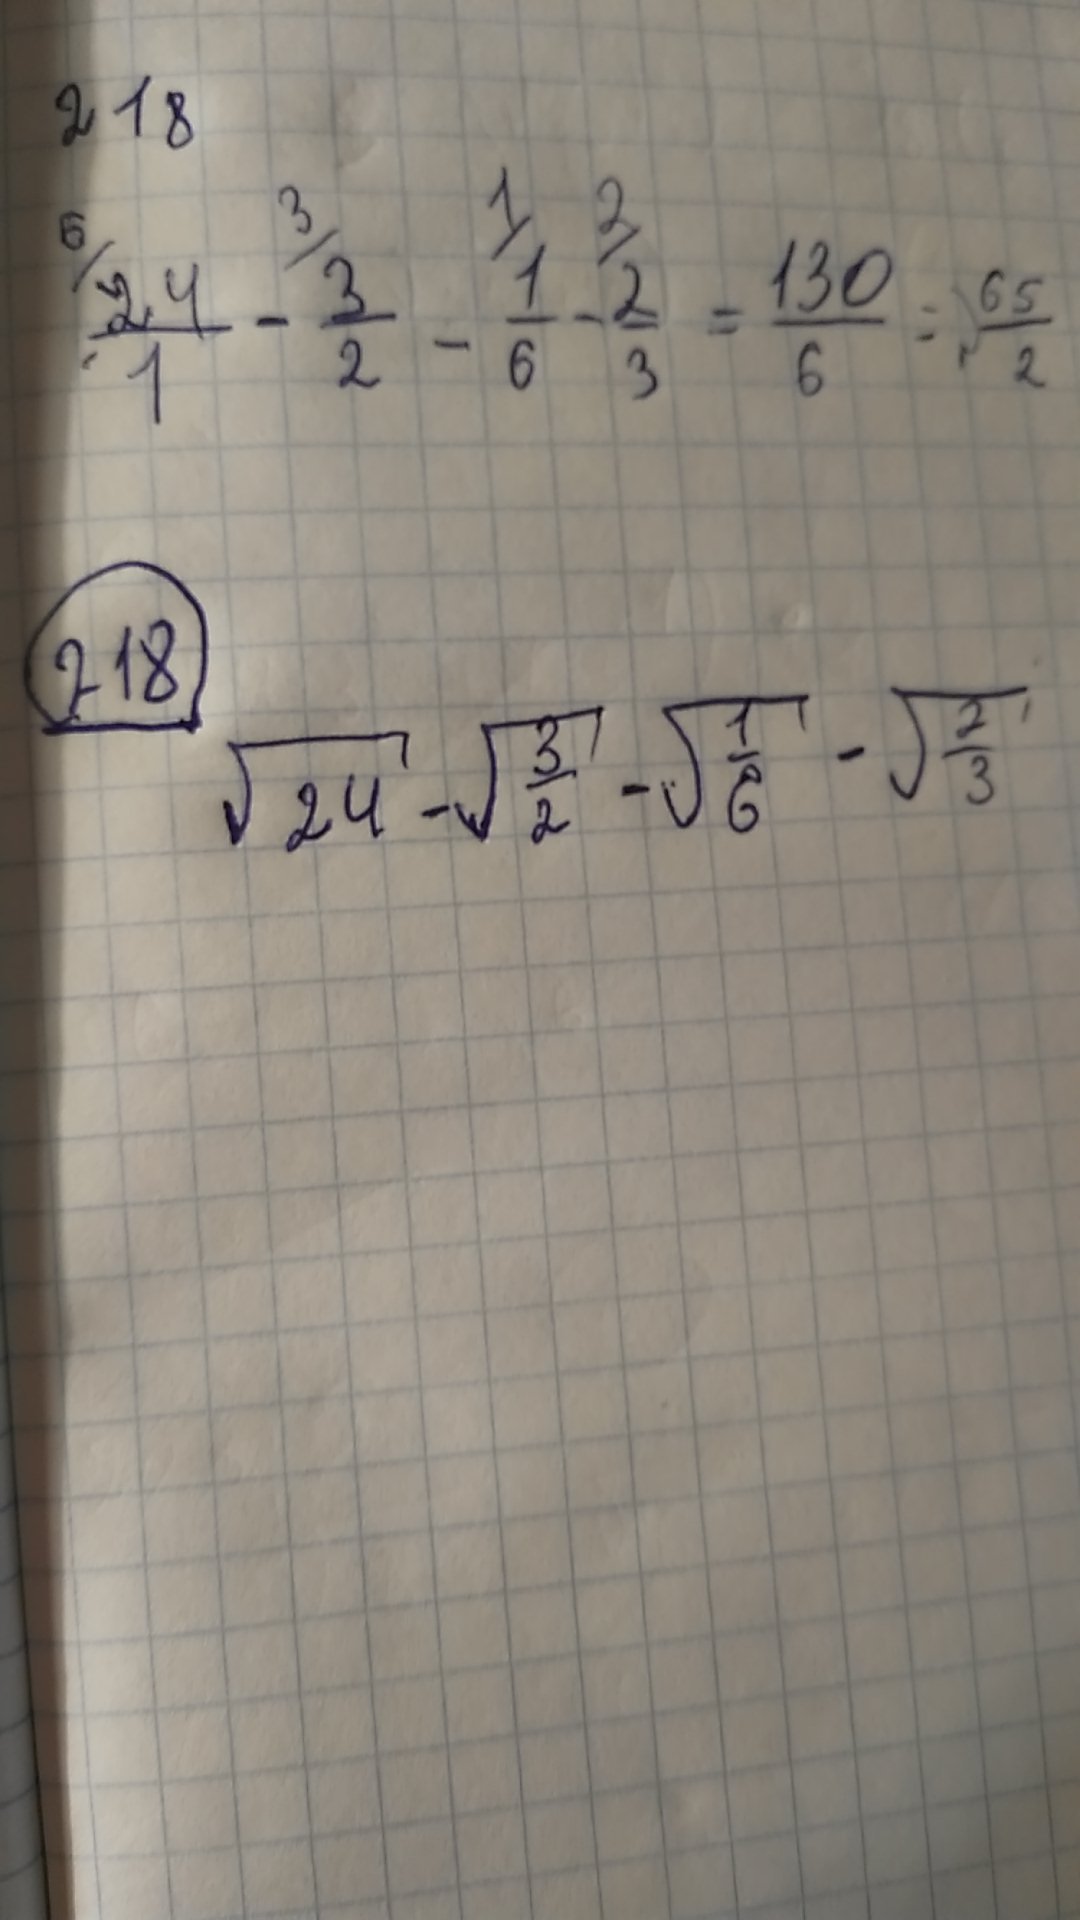 218
6/ 24/1 - 3/ 3/2 - 1/ 1/6 - 2/ 2/3 = 130/6 = 65/2
218 √24 - √3/2 - √1/6 - √2/3